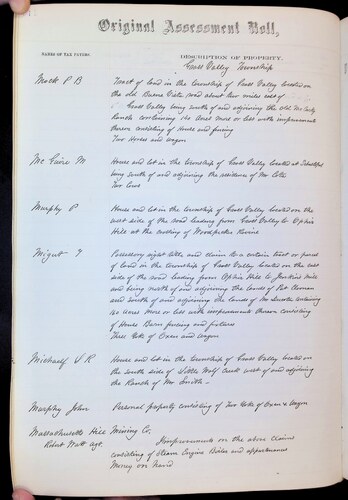 Original Assessment Roll,
NAMES OF TAX PAYERS
DESCRIPTION OF PROPERTY.
Grass Valley Township
Mock P B Tract of land in the township of Grass Valley located on
the old Buena Vista road about two miles east of
Grass Valley being south of and adjoining the Old
Ranch containing 160 Acres more or less with improvements
thereon consisting of House and fencing
Two Horses and wagon
Mc Guire M House and lot in the township of Grass Valley located at
being south of and adjoining the residence of Mr
Two Cows
Murphy P House and lot in the township of Grass Valley located on the
west side of the road leading from Grass Valley to Ophir
Hill at the crossing of Woodpecker Ravine
Possessory right title and claim to a certain tract or parcel
of land in the township of Grass Valley located on the east
side of the road leading from Ophir Hill to
and being north of and adjoining the lands of Pat
and south of and adjoining the lands of Mr containing
160 acres more or less with improvements thereon consisting
of House Barn fencing and fixtures
Three Yoke of Oxen and wagon
House and lot in the township of Grass Valley located on
the south side of Little Wolf Creek west of and adjoining
the Ranch of Mr Smith
Murphy John Personal property consisting of Two Yoke of Oxen & wagon
Massachusetts Hill Mining Co.
Robert Watt agt. Improvements on the above claims
consisting of Steam Engine Boiler and appurtenances
Money on hand